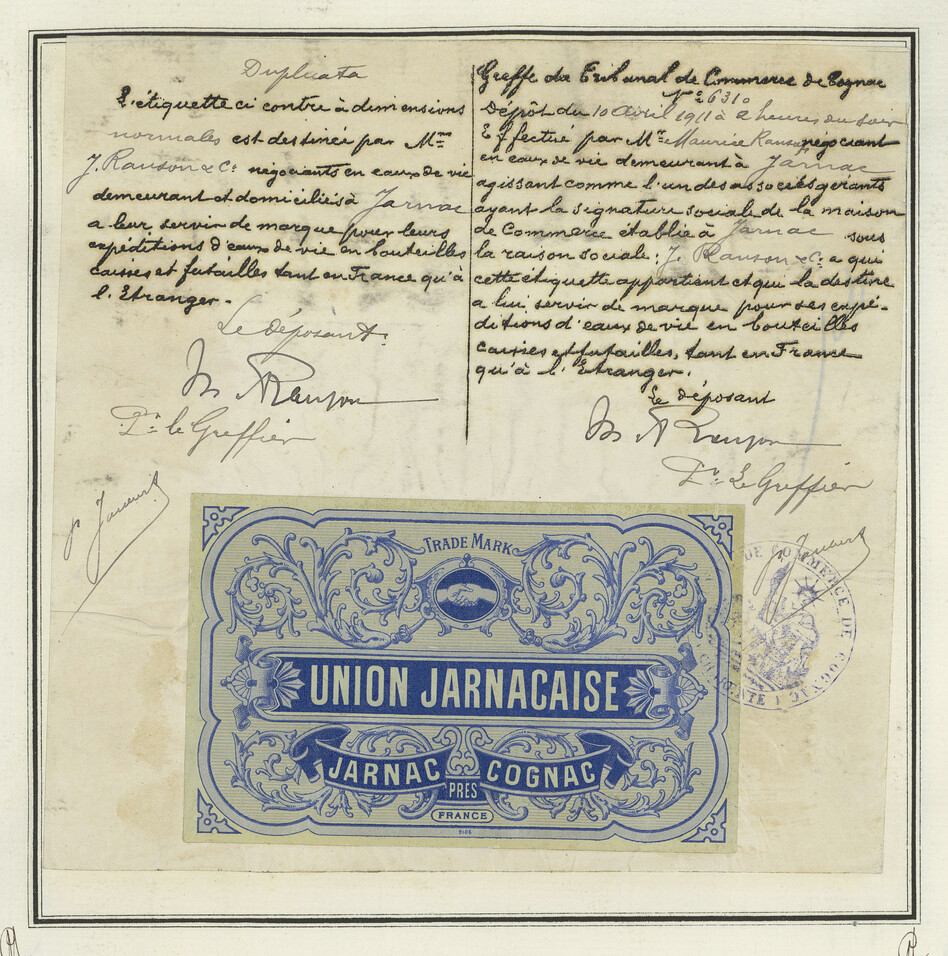 Duplicata
L'étiquette ci contre à dimensions
normales est destinée par Mrs
J. Ranson & Cie négociants en eaux de vie
demeurant et domiciliés à Jarnac
a leur servir de marque pour leurs
expéditions d'eaux de vie en bouteilles
caisses et futailles tant en France qu'à
l'Etranger.
Le déposant.
M Ranson
Pr le Greffier
Greffe du Tribunal de Commerce de Cognac
No 6310
Dépôt du 10 avril 1911 à 2 heures du soir
Effectué par Mr Maurice Ranson négociant
en eaux de vie demeurant à Jarnac
agissant comme l'un des associés gérants
ayant la signature sociale de la maison
de Commerce établie à Jarnac sous
la raison sociale: J. Ranson & Cie a qui
cette étiquette appartient et qui la destine
a lui servir de marque pour ses expé-
ditions d'eaux de vie en bouteilles
caisses et futailles, tant en France
qu'à l'Etranger.
Le déposant
M Ranson
Pr Le Greffier
DE COMMERCE DE COGNAC
TRADE MARK
UNION JARNACAISE
JARNAC COGNAC
PRÈS
FRANCE